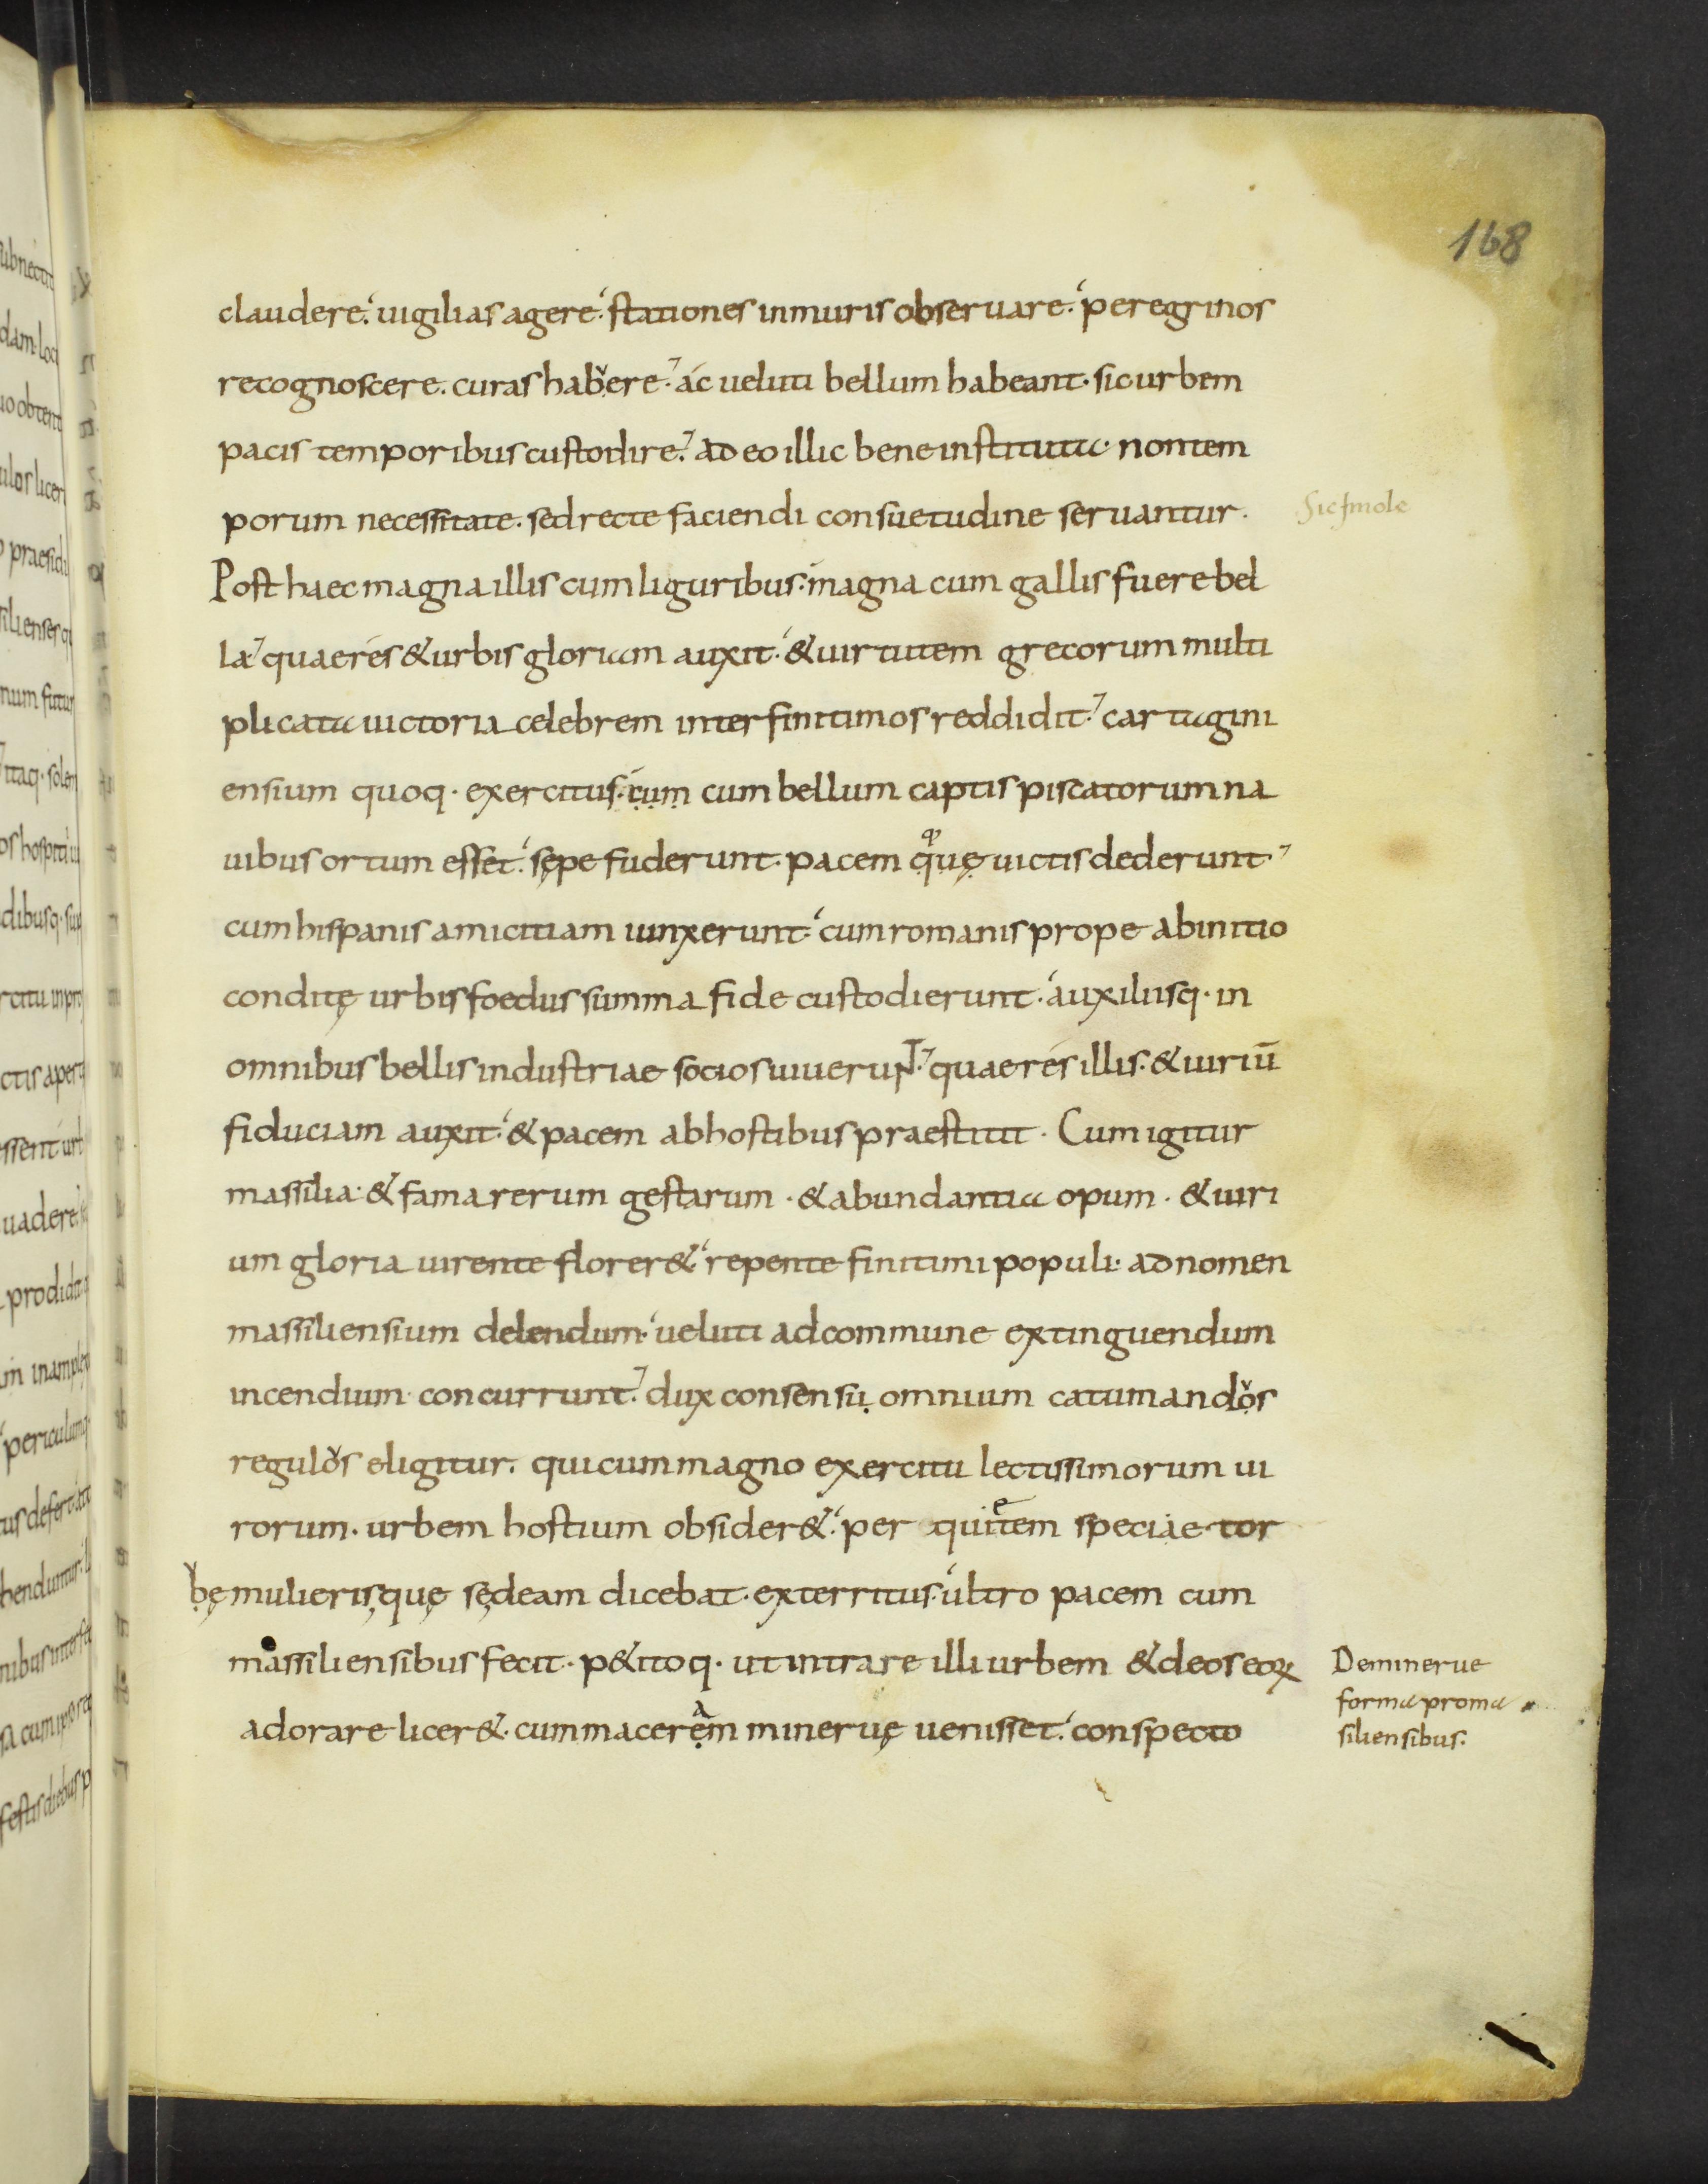 168
claudere. uigilias agere. stationes in muris obseruare. peregrinos
recognoscere. curas habere. ac ueluti bellum habeant. sic urbem
pacis temporibus custodire. adeo illic bene instituta. non tem
porum necessitate. sed recte faciendi consuetudine seruantur.
Post haec magna illis cum liguribus. magna cum gallis fuere bel
la. quae res & urbis gloriam auxit. & uirtutem grecorum multi
plicata uictoria celebrem inter finitimos reddidit. cartagini
ensium quoq. exercitus. cum cum bellum captis piscatorum na
uibus ortum esset. sępe fuderunt. pacem quę uictis dederunt.
cum hispanis amicitiam iunxerunt. cum romanis prope ab initio
conditę urbis foedus summa fide custodierunt. auxiliisq. in
omnibus bellis industriae socios iuuerunt. quae res illis. & uiriū
fiduciam auxit. & pacem ab hostibus praestitit. Cum igitur
massilia. & fama rerum gestarum. & abundantia opum. & uiri
um gloria uirente florer&. repente finitimi populi. ad nomen
massiliensium delendum. ueluti ad commune extinguendum
incendium concurrunt. dux consensu omnium catumandos
regulos eligitur. qui cum magno exercitu lectissimorum ui
rorum. urbem hostium obsider&. per quietem speciae tor
bę mulieris quę se deam dicebat. exterritus. ultro pacem cum
massiliensibus fecit. p&itoq. ut intrare illi urbem & deos eoꝝ
adorare licer&. cum macerem mineruę uenisset. conspecto
De minerue
forma pro ma
siliensibus.